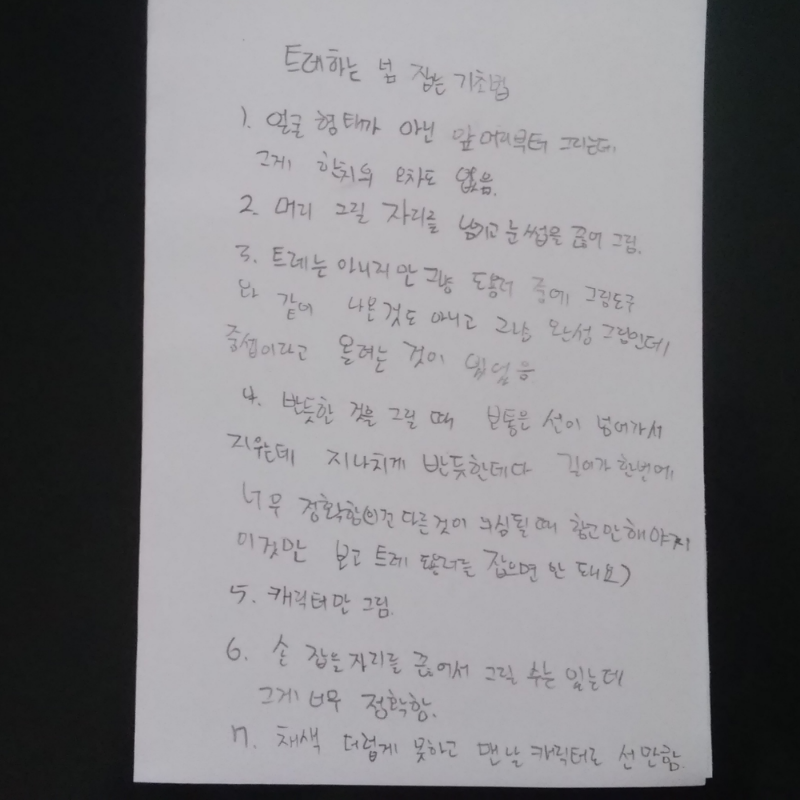 트레하는 넘 잡는 기초법
1. 얼굴 형태가 아닌 앞머리부터 그리는데.
그게 한치의 오차도 없음.
2. 머리 그릴 자리를 남기고 눈썹을 끊어 그림.
3. 트레는 아니지만 그냥 도용러 중에 그림도구
와 같이 나온것도 아니고 그냥 완성 그림인데
중셉이라고 올려는 것이 있음
4. 반듯한 것을 그릴 때 보통은 선이 넘어가서
지우는데 지나치게 반듯한데다 길이가 한번에
너무 정확함(이건 다른것이 의심될때 참고만해야지
이것만 보고 트레 도용러를 잡으면 안 돼요)
5. 캐릭터만 그림.
6. 손 잡을자리를 끊어서 그릴 수는 있는데
그게 너무 정확함.
7. 채색 더럽게 못하고 맨날 캐릭터로 선만함.